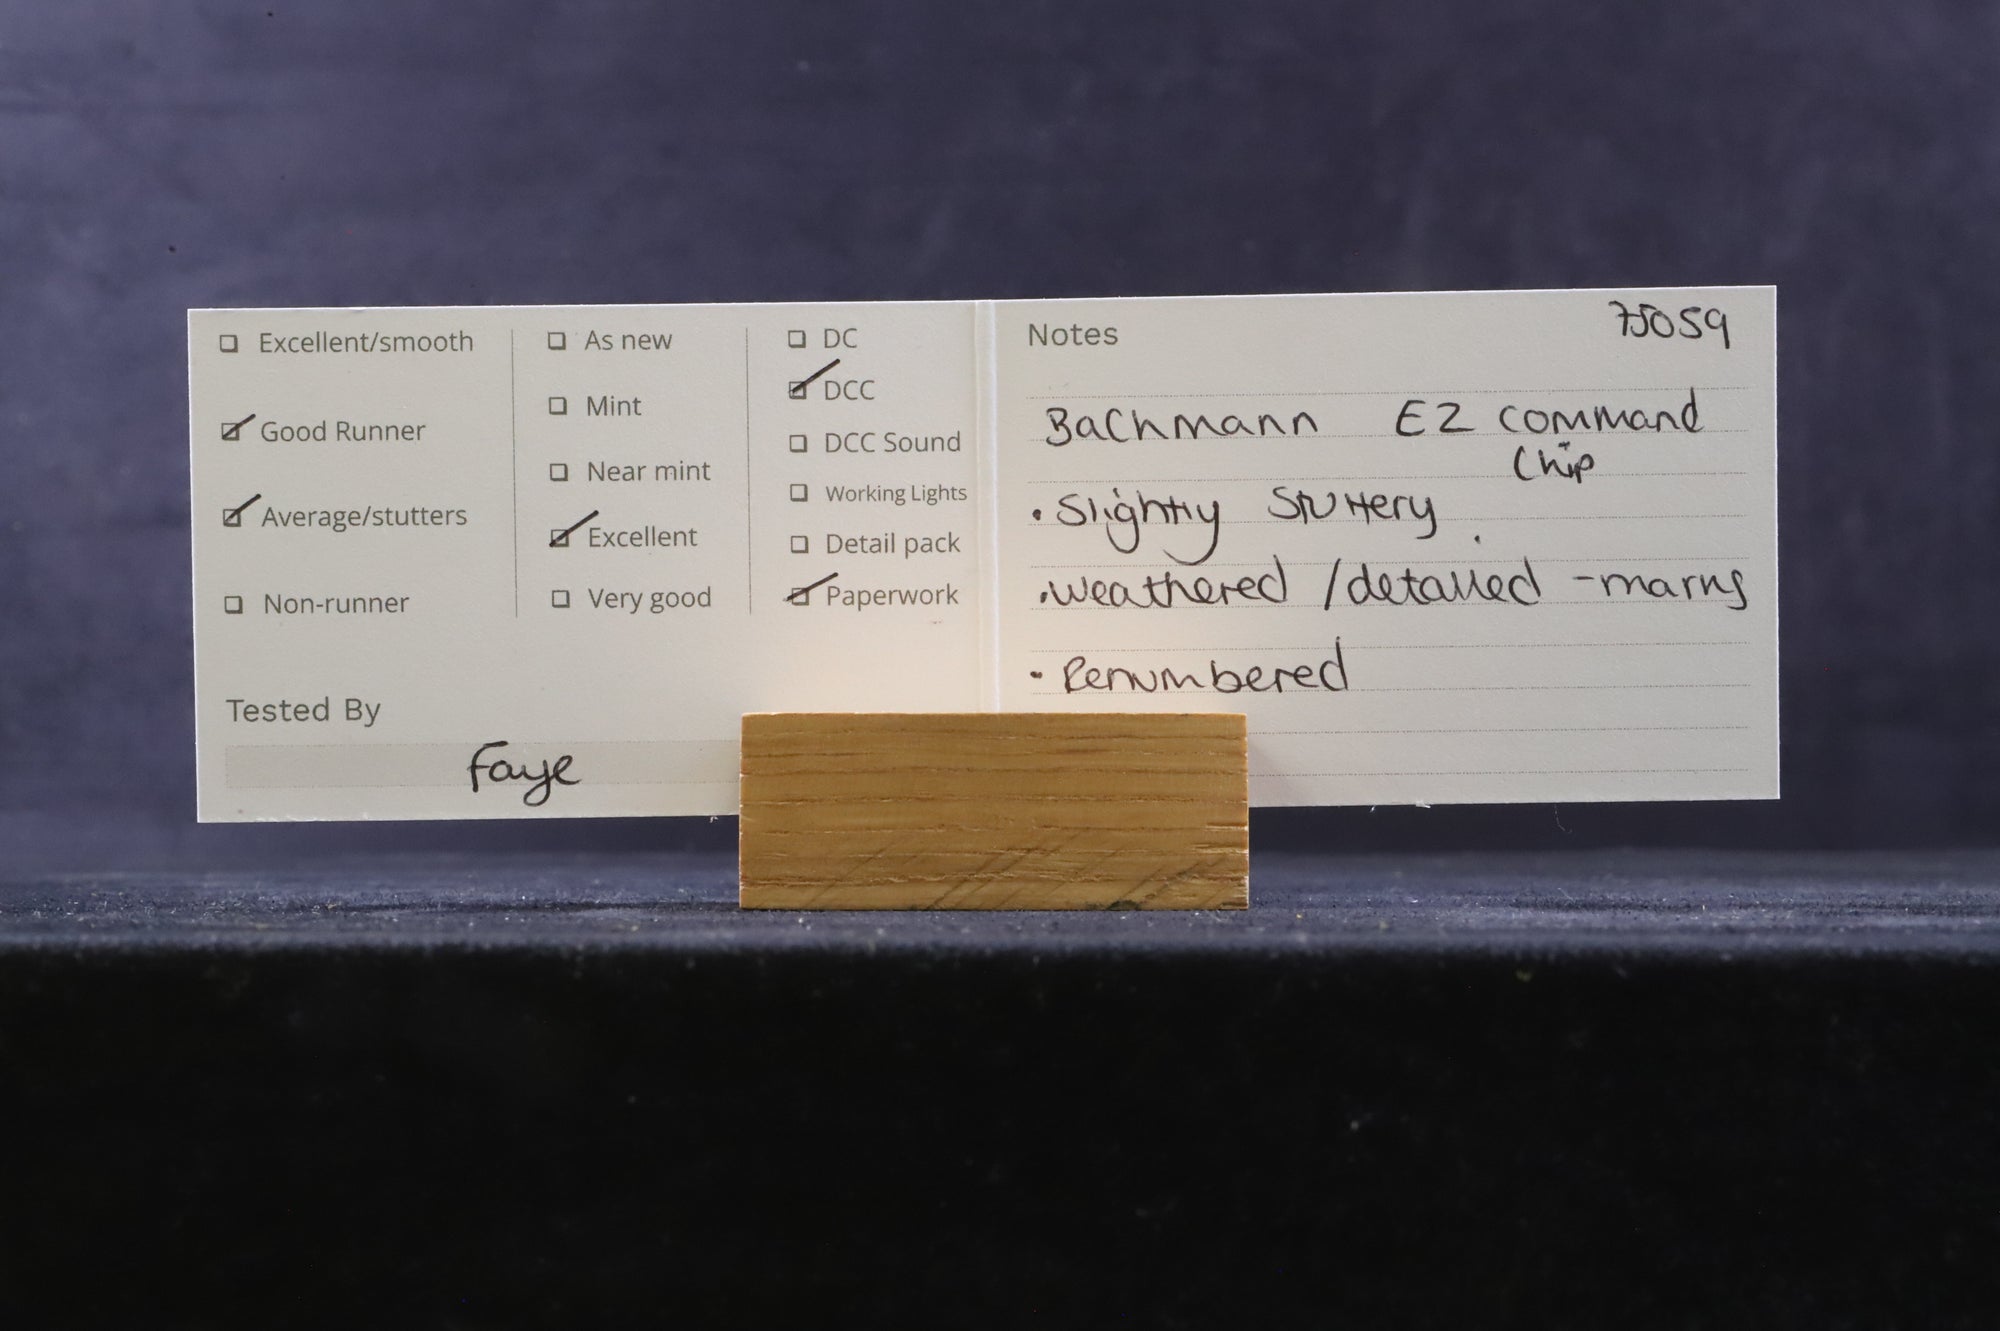 Excellent/smooth
Good Runner
Average/stutters
Non-runner
As new
Mint
Near mint
Excellent
Very good
DC
DCC
DCC Sound
Working Lights
Detail pack
Paperwork
Tested By
Faye
Notes
75059
Bachmann EZ command
Chip
• Slightly Stuttery
• Weathered / detailed - marks
• Renumbered